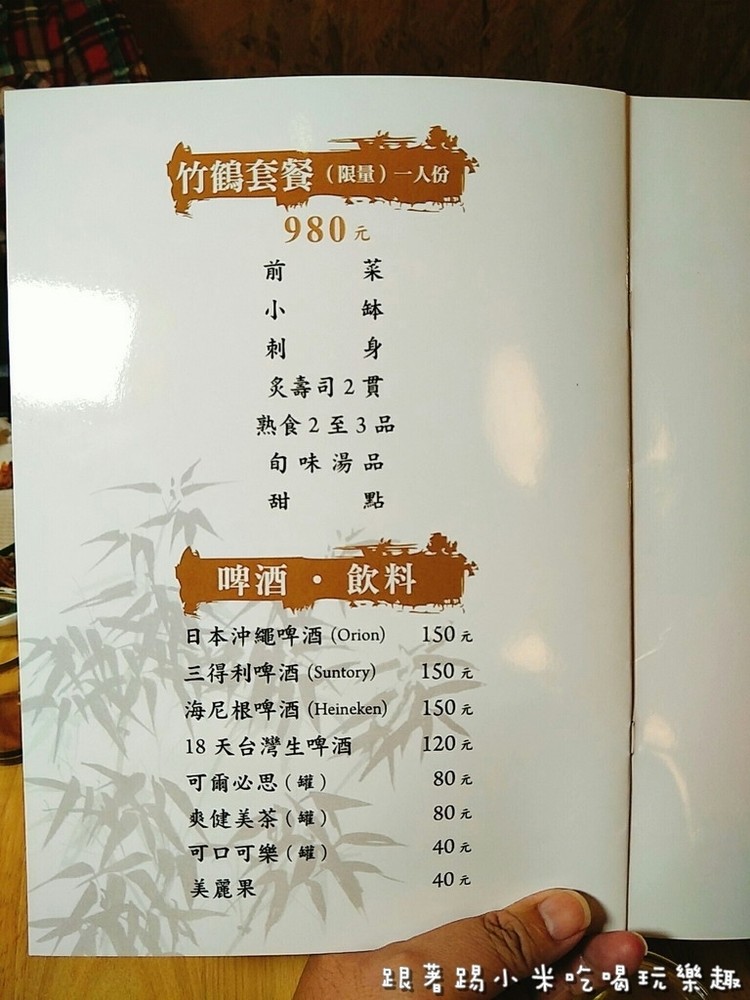 竹鶴套餐（限量）一人份
980元
前菜
小缽
刺身
炙壽司2貫
熟食2至3品
旬味湯品
甜點
啤酒・飲料
日本沖繩啤酒(Orion) 150元
三得利啤酒(Suntory) 150元
海尼根啤酒(Heineken) 150元
18天台灣生啤酒 120元
可爾必思(罐) 80元
爽健美茶(罐) 80元
可口可樂(罐) 40元
美麗果 40元
跟著踢小米吃喝玩樂趣